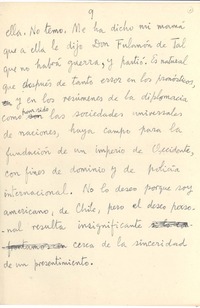 9
ella. No temo. Me ha dicho mi mamá
que a ella le dijo Don Fulanón de Tal
que no habrá guerra, y partió. Es natural
que después de tanto error en los pronósticos,
y en los resúmenes de la diplomacia
como las sociedades universales
de naciones, haya campo para la
fundación de un imperio de Occidente,
con fines de dominio y de policía
internacional. No lo deseo porque soy
americano, de Chile, pero el deseo perso-
nal resulta insignificante
cerca de la sinceridad
de un presentimiento.